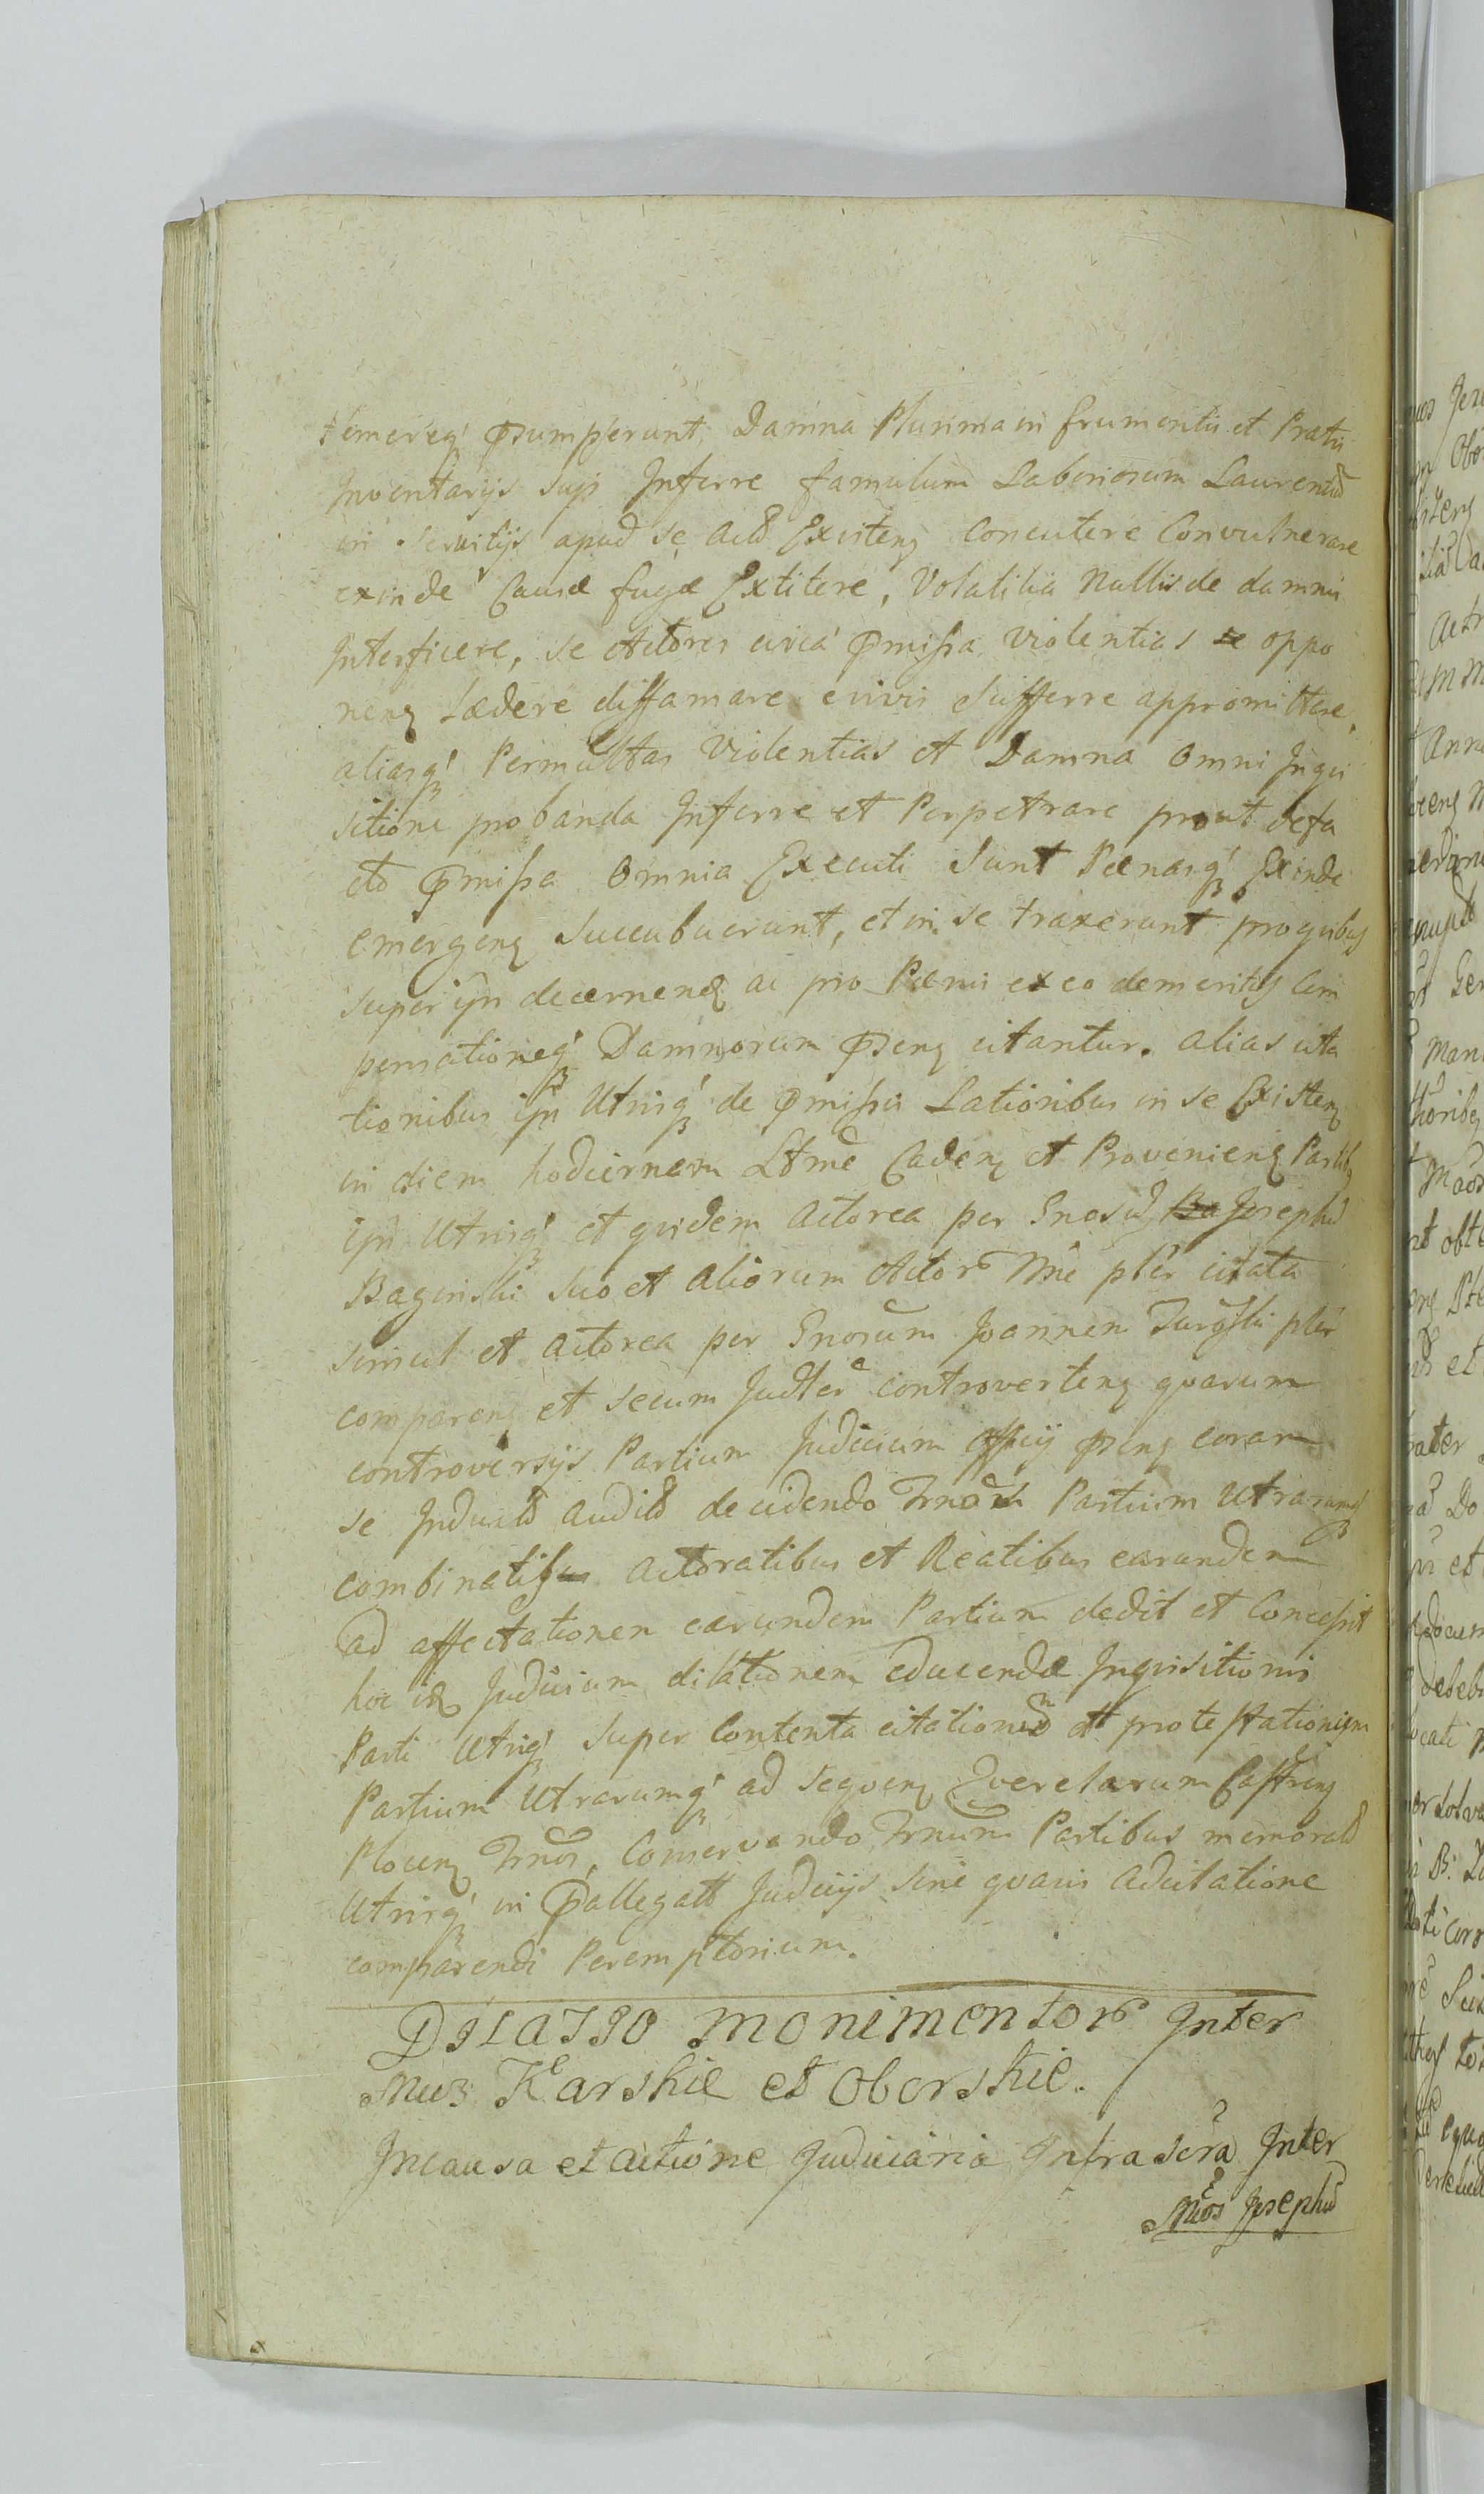 temereq́ꝫ P̄sumpserunt, Damna Plurima in frumentis et Pratis
Inventarijs suji Inferre famulum Laboriosum Laurentiū
in servitijs apud se actō Existenꝫ Concutere Convulnerare
exinde Causæ fugæ Extitere, Volatilia Nullis de damnis
Interficere, se Actores circa P̄missa violentias se oppo
nenꝫ Lædere diffamare e vivis Sufferre appromittere,
aliasq́ꝫ Permultas Violentias et Damna Omni Inqui
sitione probanda Inferre et Perpetrare prout de fa
ctō P̄missa Omnia Executi Sunt Pœnasq́ꝫ Exinde
emergenꝫ Succubuerunt, et in se traxerunt pro quibus
super ijs decernenđ ac pro Pœnis ex eo demeritis Com
pensationeq́ꝫ Damnorum P̄senꝫ citantur. alias cita
tionibus ijs Utrisq́ꝫ de P̄missis Lationibus in se Existenꝫ
in diem hodiernam Ltme Cadenꝫ et Provenienꝫ Partibꝫ
ijs Utrisq́ꝫ et quidem Actorea per Gnosū Josephū
Baginski Suo et Aliorum Actor Nne plēr citata
simul et actorea per Gnosum Joannem Turoski plēr
comparenꝫ et secum Judlēr controvertenꝫ quarum
controversijs Partium Judicium Officij P̄senꝫ coram
se Inductō Auditō decidendo Trnatā Partium Utrarumq́ꝫ
combinatis Actoratibus et Reatibus earundem
ad affectationem earundem Partium dedit et Concessit
hoc idꝫ Judicium dilationem educendæ Inquisitionis
Parti Utriq́ꝫ super Contenta citationum et protestationum
Partium Utrarumq́ꝫ ad sequenꝫ Querelarum Castrenꝫ
Plocenꝫ Trnos, Conservando Trnum Partibus memoratō
Utrisq́ꝫ in P̄allegatt Judicijs Sine quavis Adcitatione
comparendi Peremptorium.
DILATIO Monimentor Inter
Mcos Karskie et Oborskie.
In causa et actione Judiciaria Infra scra Inter
Mcos Josephū